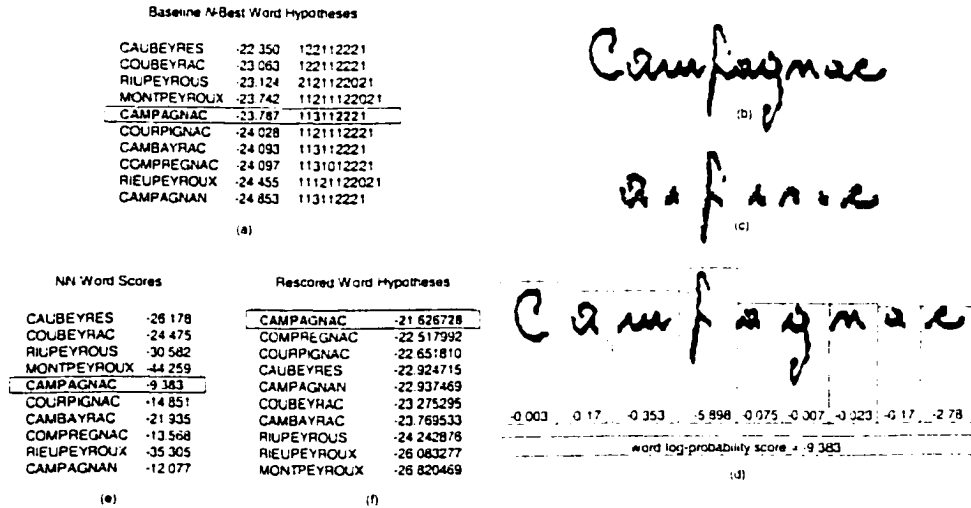 Baseline N-Best Word Hypotheses
CAUBEYRES -22 350 122112221
COUBEYRAC -23 063 122112221
RIUPEYROUS -23.124 2121122021
MONTPEYROUX -23 742 11211122021
CAMPAGNAC -23.787 113112221
COURPIGNAC -24 028 1121112221
CAMBAYRAC -24 093 113112221
COMPREGNAC -24 097 1131012221
RIEUPEYROUX -24 455 11121122021
CAMPAGNAN -24 853 113112221
(a)
Campagnac
(b)
(c)
NN Word Scores
CAUBEYRES -26 178
COUBEYRAC -24 475
RIUPEYROUS -30 582
MONTPEYROUX -44 259
CAMPAGNAC -9 383
COURPIGNAC -14 851
CAMBAYRAC -21 935
COMPREGNAC -13.568
RIEUPEYROUX -35 305
CAMPAGNAN -12 077
(e)
Rescored Word Hypotheses
CAMPAGNAC -21 626728
COMPREGNAC -22 517992
COURPIGNAC -22 651810
CAUBEYRES -22.924715
CAMPAGNAN -22 937469
COUBEYRAC -23 275295
CAMBAYRAC -23.769533
RIUPEYROUS -24 242876
RIEUPEYROUX -26 083277
MONTPEYROUX -26 820469
(f)
C a m p a g n a c
-0.003 -0.17 -0.353 -5.898 -0.075 -0.007 -0.323 -0.17 -2.78
word log-probability score = -9 383
(d)